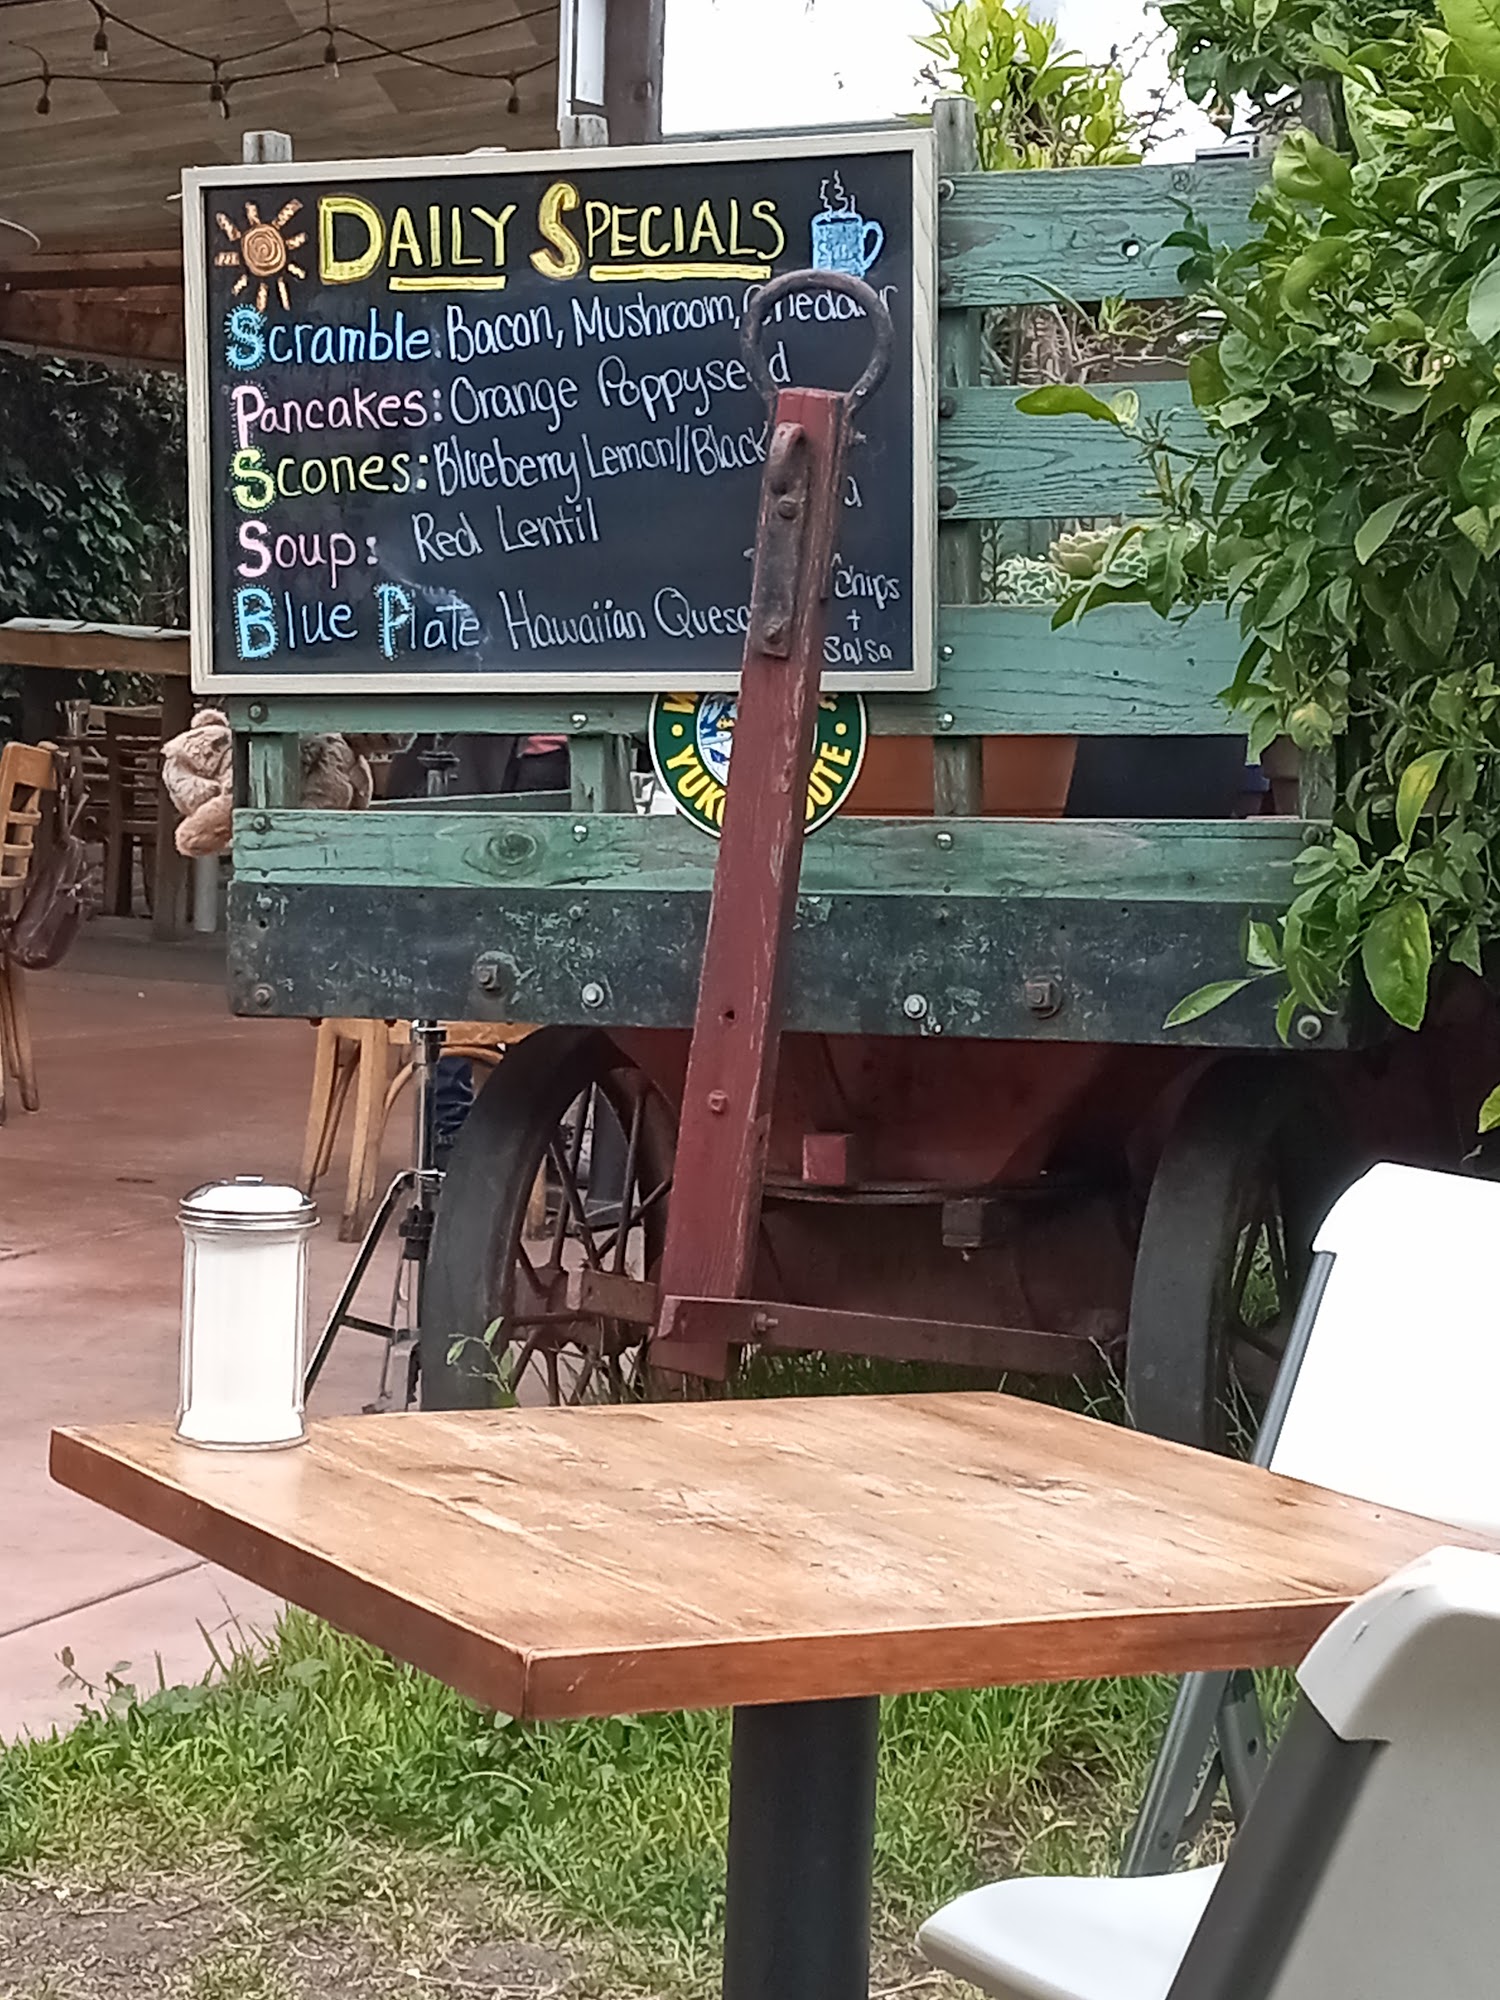 DAILY SPECIALS
Scramble: Bacon, Mushroom, Cheddar
Pancakes: Orange Poppyseed
Scones: Blueberry Lemon//Black
Soup: Red Lentil
Blue Plate Hawaiian
Chips
+
Salsa